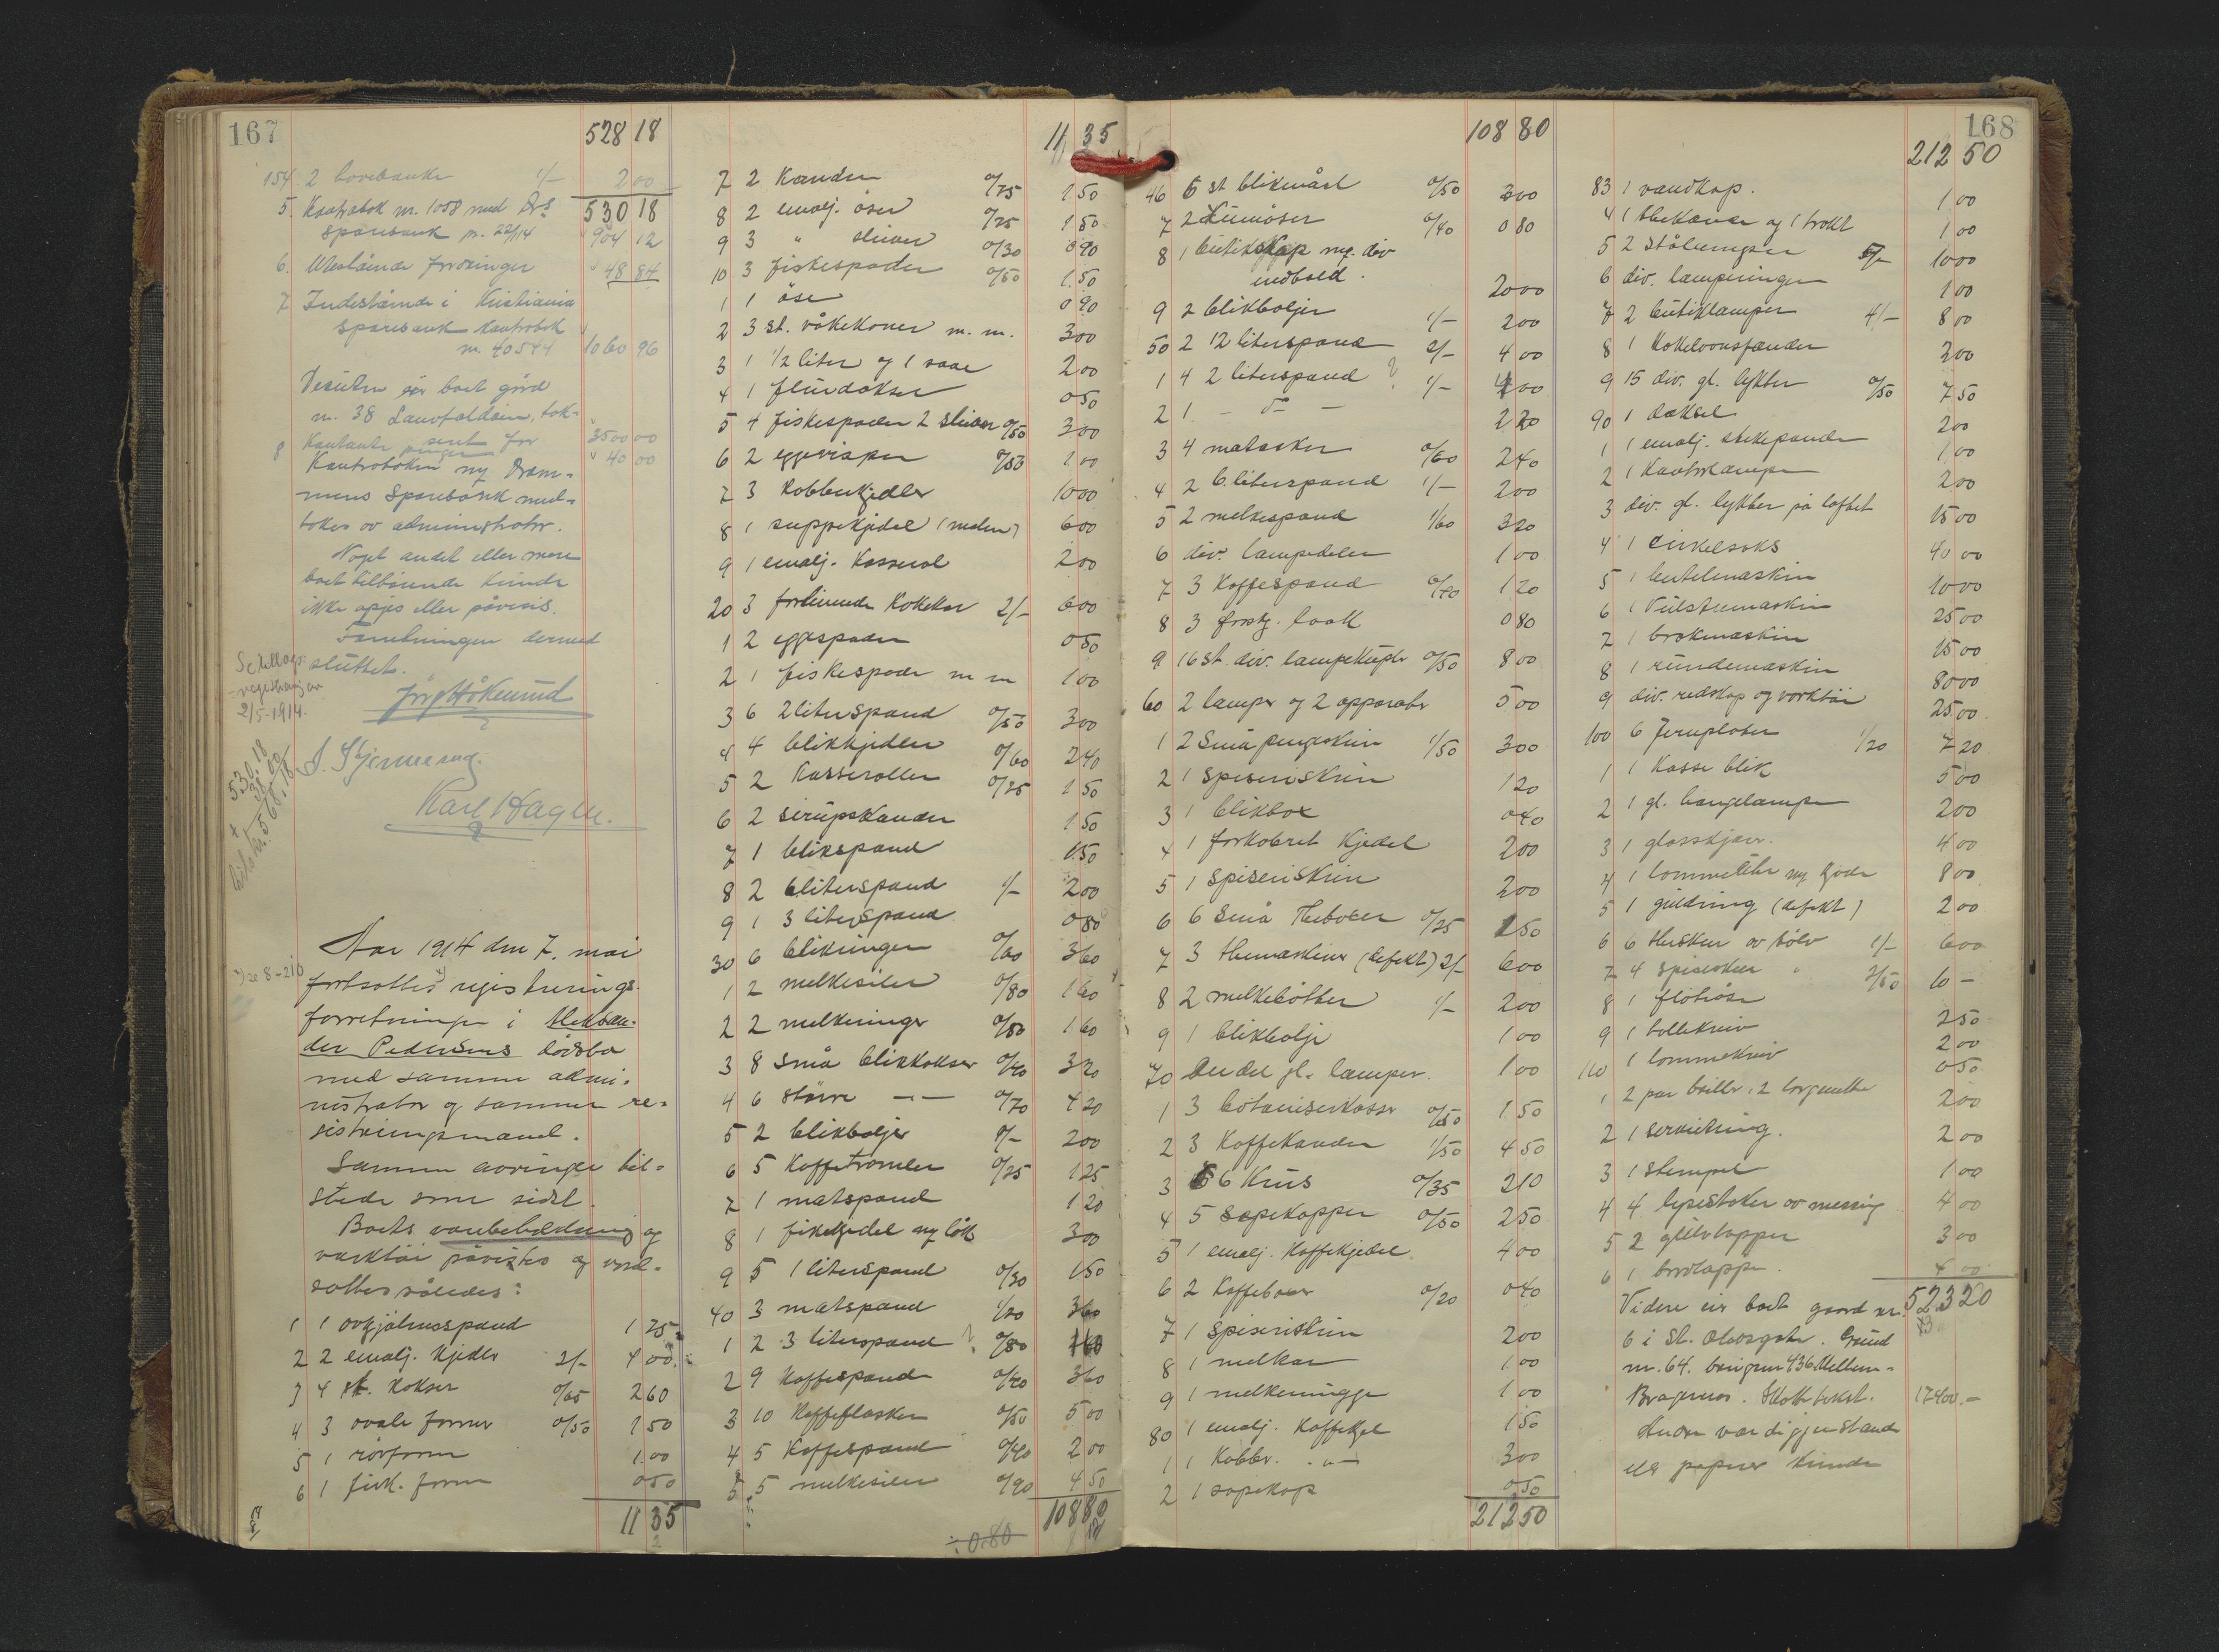 167
528 18
154 2 1/- 2 00
5 Kontrabok nr. 1058 med Drs 530 18
Sparebank pr. 22/1 14 904 12
6. Utestående fordringer 48 84
7 Indestående i Kristiania
Sparebank Kontrabok
nr. 40544 1060 96
Desuten eier boet gård
nr. 38 Landfaldöen, tak-
sert for 3500 00
8 Kontante penger 40 00
Kontraboken Dram-
mens Sparebank mot-
tokes av administrator.
Noget andet eller mere
boet tilhörende kunde
ikke opgis eller påvises.
Forretningen dermed
sluttet.
registrering av
2/5-1914.
Karl Hagen.
530.18
38.00
568.18
Aar 1914 den 7. mai
fortsattes registrerings-
forretningen i Aleksan-
der Pedersens dödsbo
med samme admi-
nistrator og samme re-
gistreringsmand.
Samme arvinger til-
stede som sidst.
Boets varebeholdning og
verktöi påvistes og verd-
sattes således:
1 1 avkjölningsspand 1 25
2 2 emalj. kjedler 2/- 4 00
3 4 st. kokser 0/65 2 60
4 3 ovale former 0/50 1 50
5 1 1 00
6 1 firk. form 0 50
11 35
11 35
7 2 Kander 0/75 1 50
8 2 emalj. öser 0/75 1 50
9 3 " sleiver 0/30 0 90
10 3 fiskespader 0/50 1 50
1 1 öse 0 90
2 3 st. m. m. 3 00
3 1 1/2 liter og 1 2 00
4 1 0 50
5 4 fiskespader 2 sleiver 0/50 3 00
6 2 eggevisper 0/50 1 00
7 3 Kobberkjedler 10 00
8 1 suppekjedel 6 00
9 1 emalj. Kasserol 2 00
20 3 fortinnede Kokekar 2/- 6 00
1 2 eggespader 0 50
2 1 fiskespade m m 1 00
3 6 2 literspand 0/50 3 00
4 4 blikkjedler 0/60 2 40
5 2 Kasseroller 0/75 1 50
6 2 sirupskander 1 50
7 1 blikspand 1 50
8 2 6 literspand 1/- 2 00
9 1 3 literspand 0 80
30 6 blikringer 0/60 3 60
1 2 melkesiler 0/80 1 60
2 2 melkeringer 0/80 1 60
3 8 små blikkokser 0/40 3 20
4 6 större -"- 0/70 4 20
5 2 blikboljer 1/- 2 00
6 5 Kaffetromler 0/25 1 25
7 1 matspand 1 20
8 1 fiskekjedel m/ lök 3 00
9 5 1 literspand 0/30 1 50
40 3 matspand 1/20 3 60
1 2 3 literspand 0/80 1 60
2 9 Kaffespand 0/40 3 60
3 10 Kaffeflasker 0/50 5 00
4 5 Kaffespand 0/40 2 00
5 5 melkesiler 0/90 4 50
108 80
÷ 0.80
108 80
46 6 st blikmål 0/50 3 00
7 2 0/40 0 80
8 1 butikskap m/ div
indhold. 20 00
9 2 blikboljer 1/- 2 00
50 2 12 literspand 2/- 4 00
1 4 2 literspand 1/- 4 00
2 1 - do - 2 20
3 4 matesker 0/60 2 40
4 2 6 literspand 1/- 2 00
5 2 melkespand 1/60 3 20
6 div. lampedeler 1 00
7 3 Kaffespand 0/40 1 20
8 3 0 80
9 16 st. div. lampekupler 0/50 8 00
60 2 lamper og 2 apparater 5 00
1 2 Små pengeskrin 1/50 3 00
2 1 spiseriskrin 1 20
3 1 blikbox 0 40
4 1 forkobret Kjedel 2 00
5 1 spiseriskrin 2 00
6 6 Små Theboxer 0/25 1 50
7 3 themaskiner (defekt) 2/- 6 00
8 2 melkebötter 1/- 2 00
9 1 blikbolje 1 00
70 En del gl. lamper. 1 00
1 3 botaniserkasser 0/50 1 50
2 3 Kaffekander 1/50 4 50
3 6 Krus 0/35 2 10
4 5 Sepekopper 0/50 2 50
5 1 emalj. Kaffekjedel 4 00
6 2 Kaffeboxer 0/20 0 40
7 1 spiseriskrin 2 00
8 1 melkar 1 00
9 1 1 00
80 1 emalj. Kaffekjel 1 50
1 1 Kobber. -"- 3 00
2 1 sepekop 0 50
212 50
168
212 50
83 1 vandkop. 1 00
4 1 og 1 trakt 1 00
5 2 5/- 10 00
6 div. lamperinger 1 00
7 2 butiklamper 4/- 8 00
8 1 3 00
9 15 div. gl. lykter 0/50 7 50
90 1 2 00
1 1 emalj. stekepande 1 00
2 1 Kontorlampe 2 00
3 div. gl. lykter på loftet 15 00
4 1 cirkelsaks 40 00
5 1 10 00
6 1 Vulstemaskin 25 00
7 1 15 00
8 1 rundemaskin 80 00
9 div. redskap og verktöi 25 00
100 6 Jernplater 1/20 7 20
1 1 Kasse blik 5 00
2 1 gl. hengelampe 2 00
3 1 glasskjær. 4 00
4 1 lommeur m/ kjede 8 00
5 1 guldring (defekt) 2 00
6 6 theskeer av sölv 1/- 6 00
7 4 spiseskeer " 2/50 10 -
8 1 flöteöse 2 50
9 1 bollekniv 2 00
110 1 lommekniv 0 50
1 2 par briller, 2 lorgnetter 2 00
2 1 serviettring. 2 00
3 1 stempel 1 00
4 4 lysestaker av messing 4 00
5 2 gulvtepper 3 00
6 1 bordteppe. 4 00
523 20
Videre eier boet gaard nr.
6 i St. Olavsgate. Grund
nr. 64. 436 Mellem-
Bragernes. Skattetakst. 17400.-
Andre verdigjenstande
eller papirer kunde